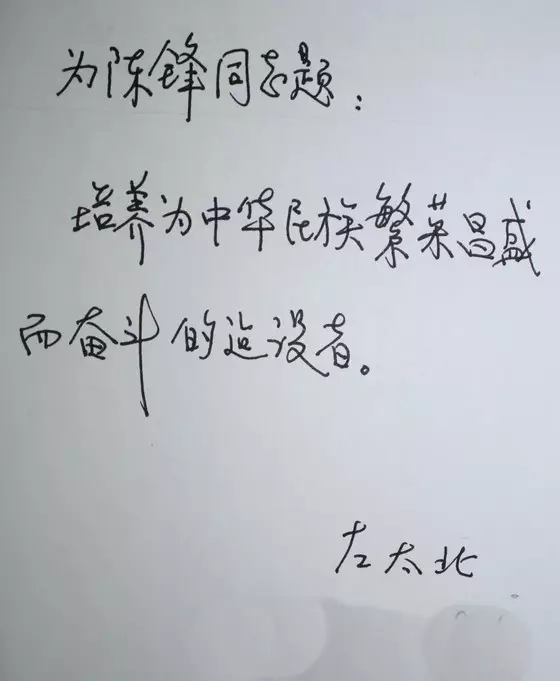 为陈锋同志题：
培养为中华民族繁荣昌盛
而奋斗的建设者。
左太北